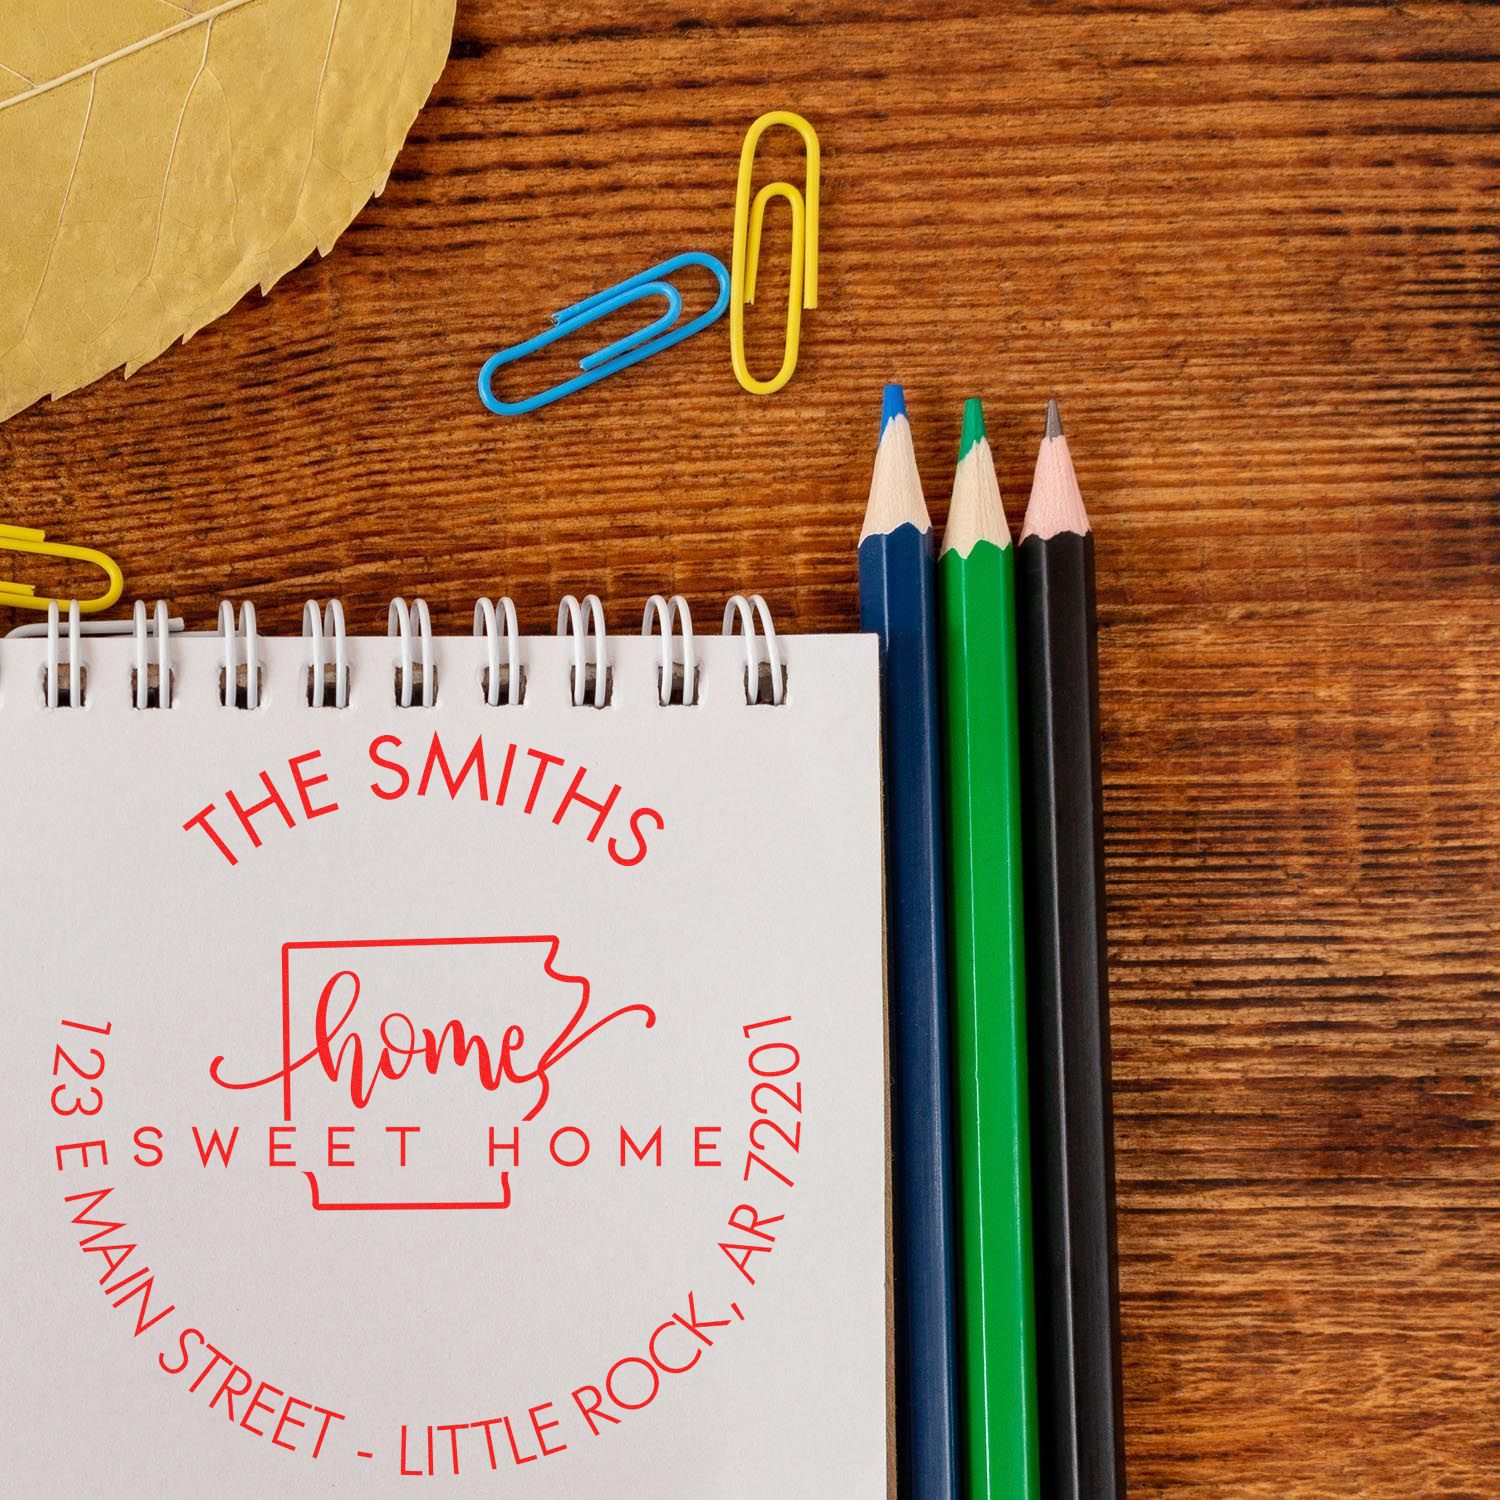 THE SMITHS
home
SWEET HOME
123 E MAIN STREET - LITTLE ROCK, AR 72201